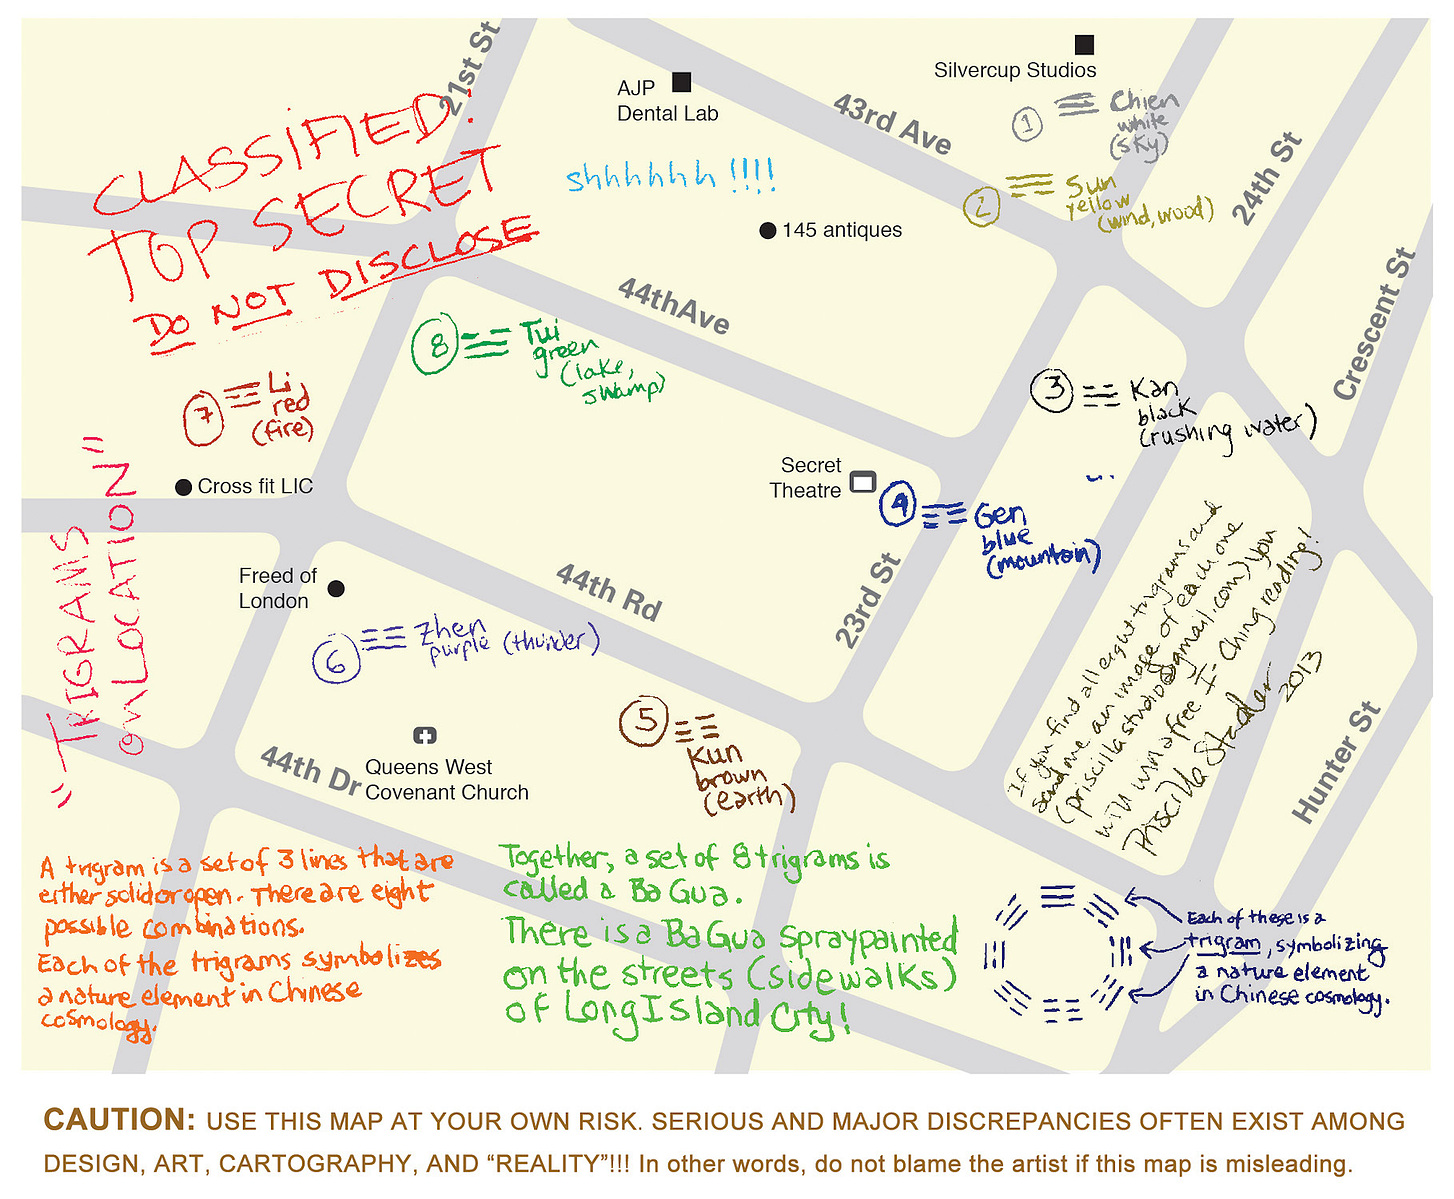 CLASSIFIED!
TOP SECRET
DO NOT DISCLOSE
21st St
AJP
Dental Lab
Silvercup Studios
43rd Ave
1 Chien
white
(sky)
24th St
shhhhhh !!!!
2 Sun
yellow
(wind, wood)
145 antiques
44thAve
Crescent St
8 Tui
green
(lake,
swamp)
7 Li
red
(fire)
3 Kan
black
(rushing water)
Cross fit LIC
Secret
Theatre
4 Gen
blue
(mountain)
"TRIGRAMS
on LOCATION"
Freed of
London
44th Rd
23rd St
6 Zhen
purple (thunder)
5
Kun
brown
(earth)
Queens West
Covenant Church
44th Dr
Hunter St
If you find all eight trigrams and
send me an image of each one
(priscillastudio@gmail.com) you
will win a free I-Ching reading!
Priscilla Stadler 2013
A trigram is a set of 3 lines that are
either solid or open. There are eight
possible combinations.
Each of the trigrams symbolizes
a nature element in Chinese
cosmology.
Together, a set of 8 trigrams is
called a Ba Gua.
There is a Ba Gua spraypainted
on the streets (sidewalks)
of Long Island City!
Each of these is a
trigram, symbolizing
a nature element
in Chinese cosmology.
CAUTION: USE THIS MAP AT YOUR OWN RISK. SERIOUS AND MAJOR DISCREPANCIES OFTEN EXIST AMONG
DESIGN, ART, CARTOGRAPHY, AND “REALITY”!!! In other words, do not blame the artist if this map is misleading.